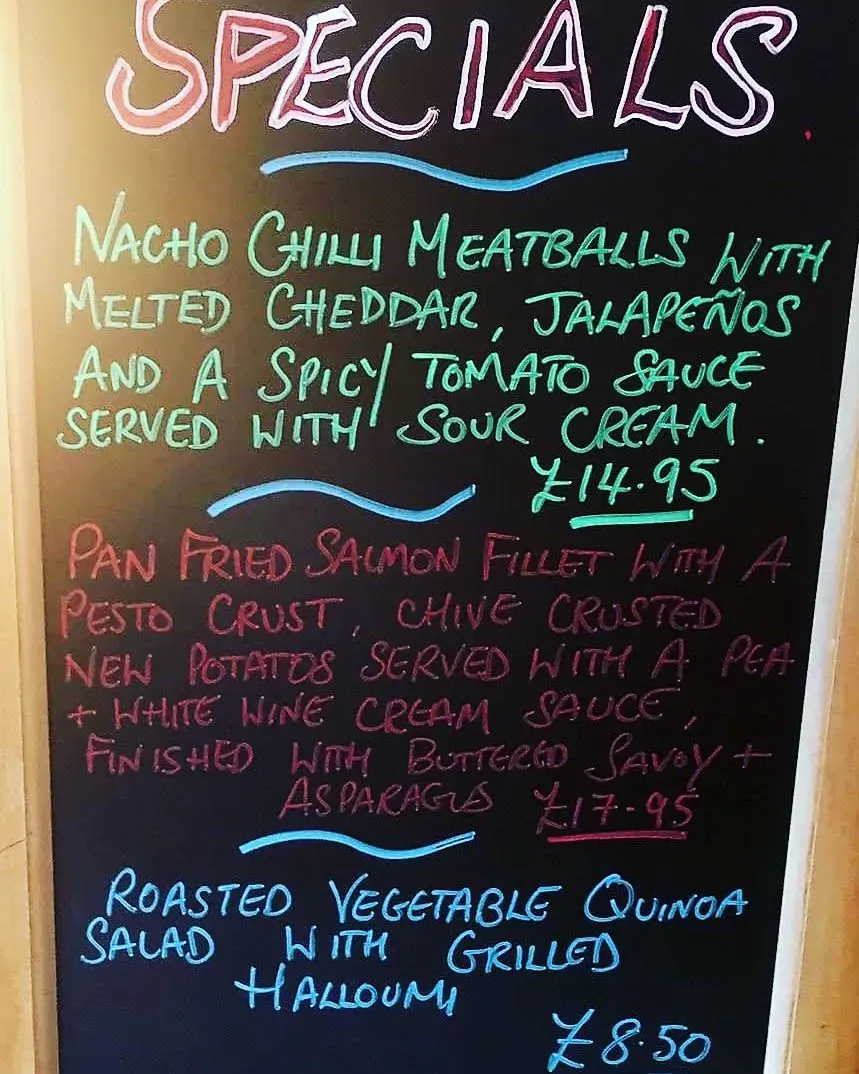 SPECIALS
NACHO CHILLI MEATBALLS WITH
MELTED CHEDDAR, JALAPEÑOS
AND A SPICY TOMATO SAUCE
SERVED WITH SOUR CREAM.
£14.95
PAN FRIED SALMON FILLET WITH A
PESTO CRUST, CHIVE CRUSTED
NEW POTATOS SERVED WITH A PEA
+ WHITE WINE CREAM SAUCE,
FINISHED WITH BUTTERED SAVOY +
ASPARAGUS £17-95
ROASTED VEGETABLE QUINOA
SALAD WITH GRILLED
HALLOUMI
£8.50